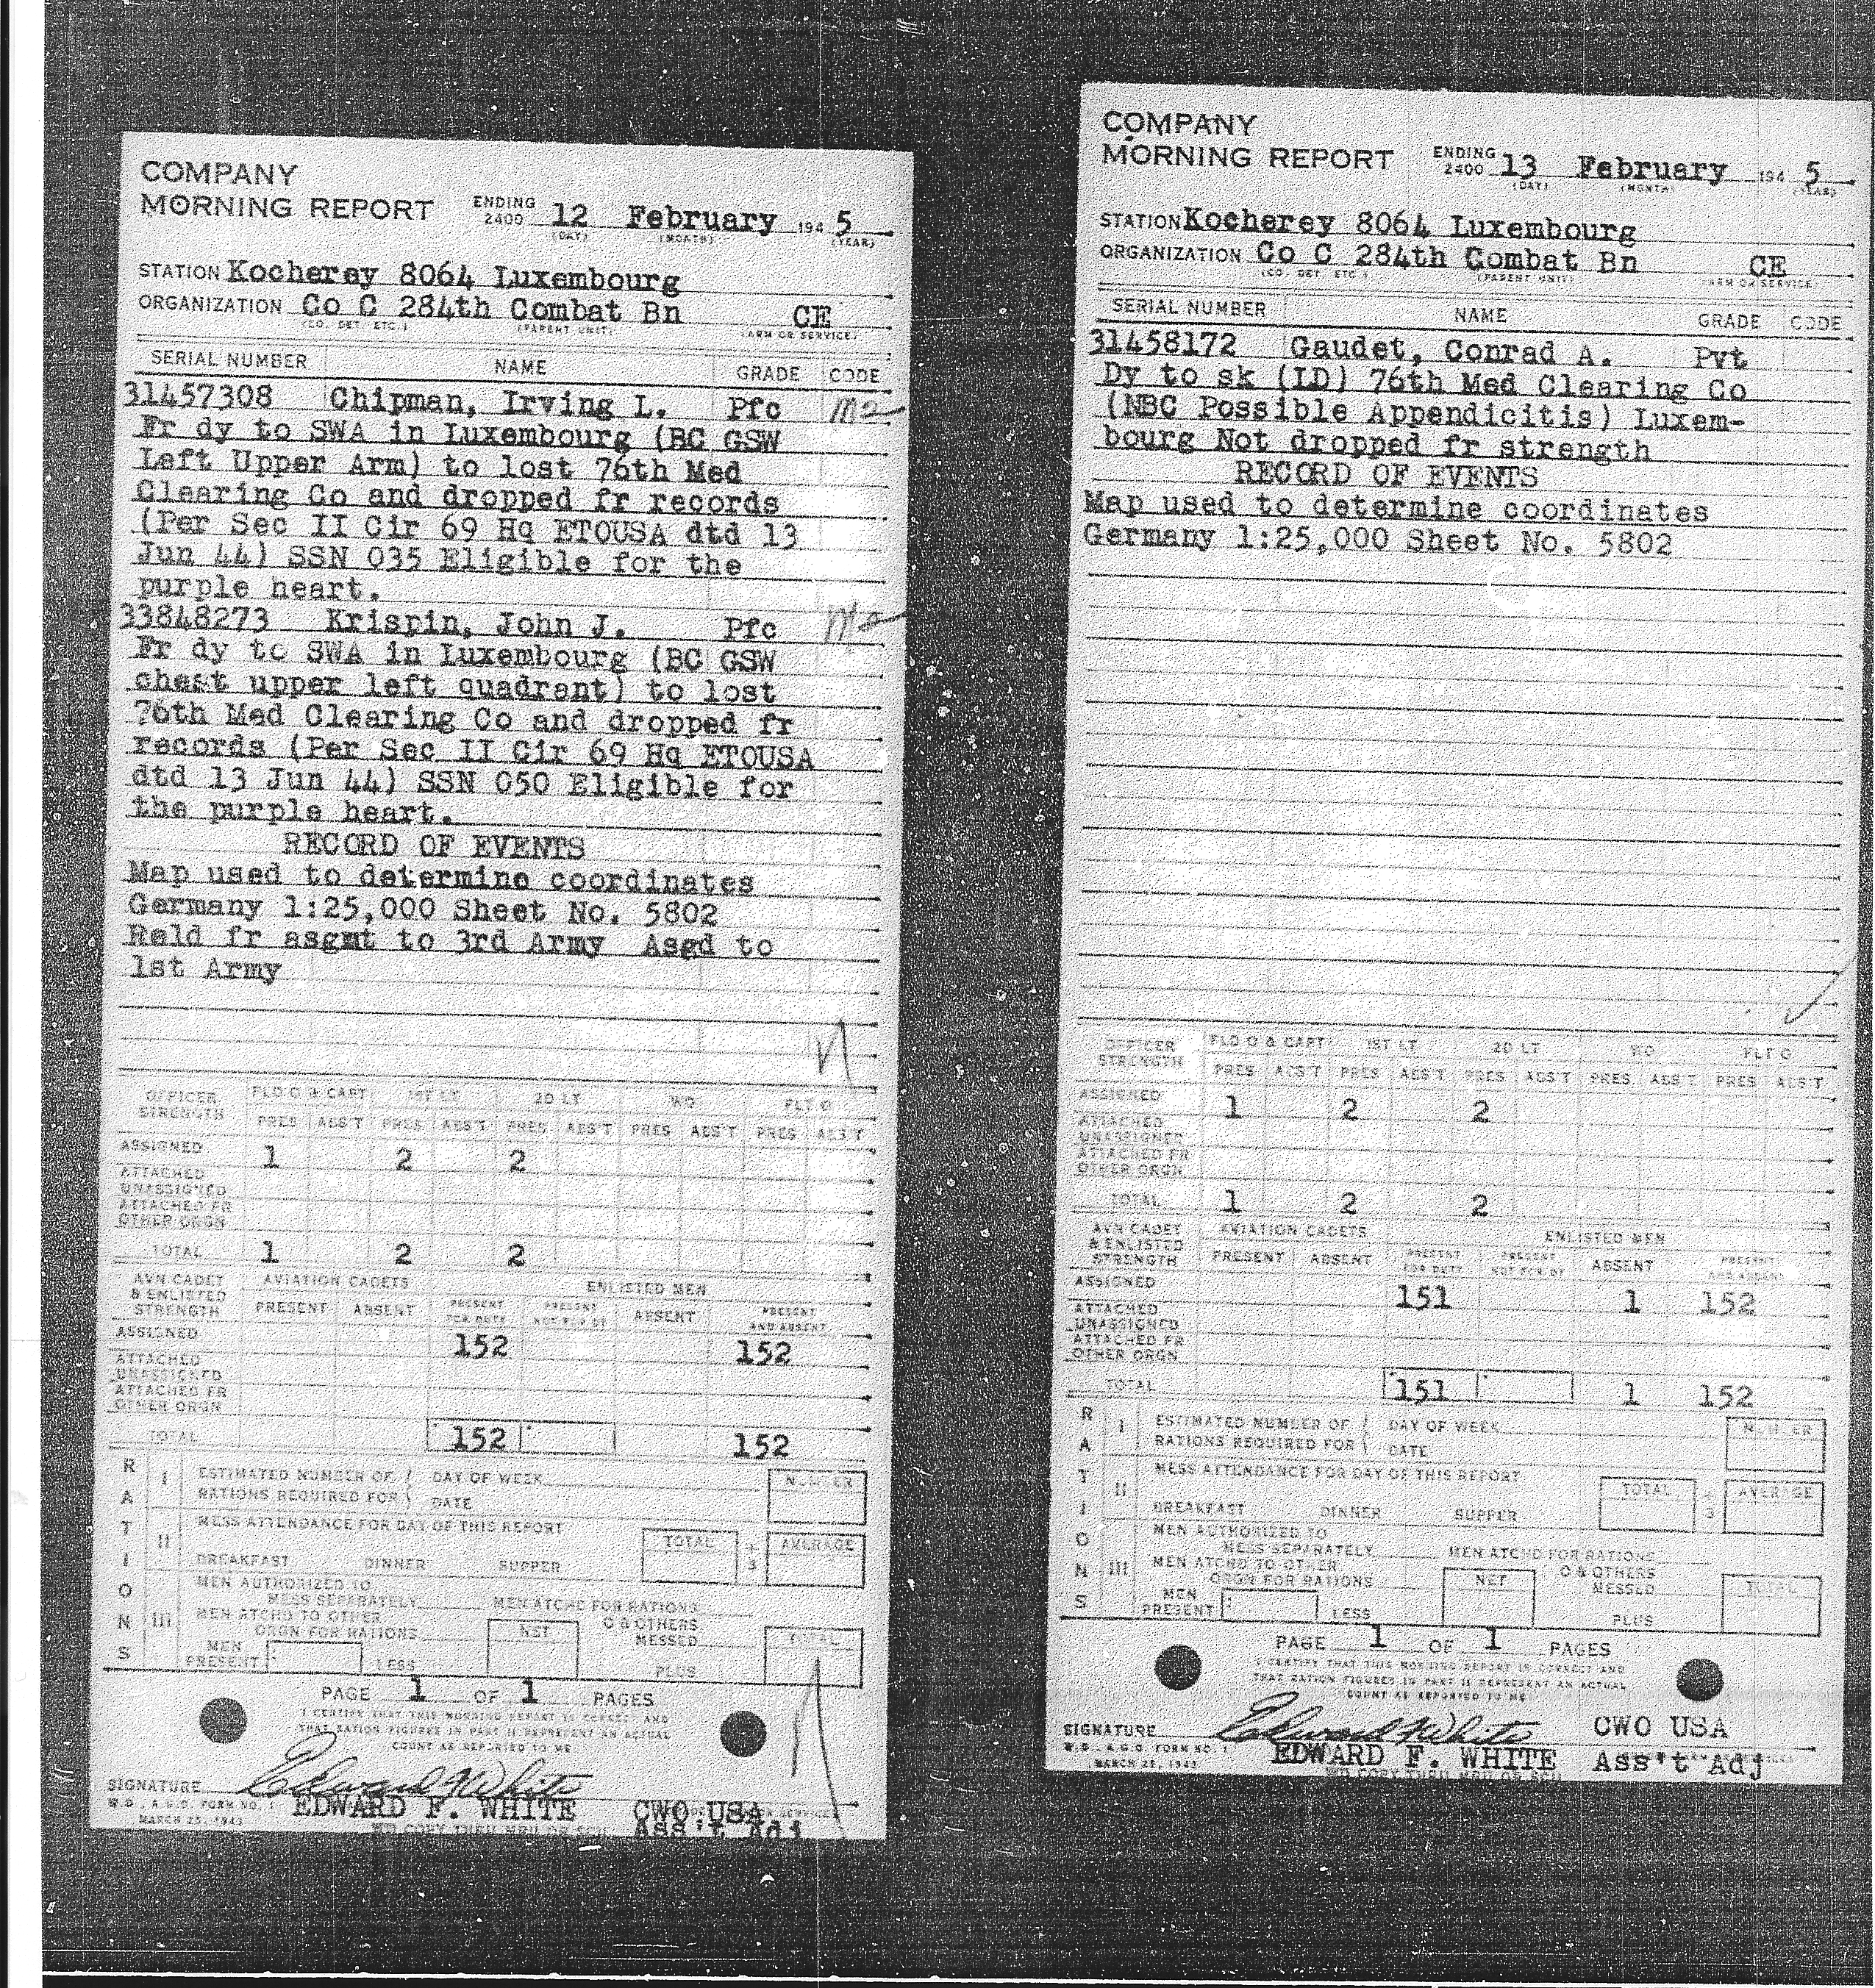 COMPANY
MORNING REPORT ENDING 2400 12 February 194 5
(DAY) (MONTH) (YEAR)
STATION Kocherey 8064 Luxembourg
ORGANIZATION Co C 284th Combat Bn CE
(CO. DET. ETC.) (PARENT UNIT) (ARM OR SERVICE)
SERIAL NUMBER NAME GRADE CODE
31457308 Chipman, Irving L. Pfc
Fr dy to SWA in Luxembourg (BC GSW
Left Upper Arm) to lost 76th Med
Clearing Co and dropped fr records
(Per Sec II Cir 69 Hq ETOUSA dtd 13
Jun 44) SSN 035 Eligible for the
purple heart.
33848273 Krispin, John J. Pfc
Fr dy to SWA in Luxembourg (BC GSW
chest upper left quadrant) to lost
76th Med Clearing Co and dropped fr
records (Per Sec II Cir 69 Hq ETOUSA
dtd 13 Jun 44) SSN 050 Eligible for
the purple heart.
RECORD OF EVENTS
Map used to determine coordinates
Germany 1:25,000 Sheet No. 5802
Reld fr asgmt to 3rd Army Asgd to
1st Army
OFFICER STRENGTH FLD O & CAPT 1ST LT 2D LT WO FLT O
PRES ABS'T PRES ABS'T PRES ABS'T PRES ABS'T PRES ABS'T
ASSIGNED 1 2 2
ATTACHED
UNASSIGNED
ATTACHED FR
OTHER ORGN
TOTAL 1 2 2
AVN CADET & ENLISTED STRENGTH AVIATION CADETS ENLISTED MEN
PRESENT ABSENT PRESENT FOR DUTY PRESENT NOT FOR DY ABSENT PRESENT AND ABSENT
ASSIGNED 152 152
ATTACHED
UNASSIGNED
ATTACHED FR
OTHER ORGN
TOTAL 152 152
RATIONS
I ESTIMATED NUMBER OF DAY OF WEEK NUMBER
RATIONS REQUIRED FOR DATE
II MESS ATTENDANCE FOR DAY OF THIS REPORT TOTAL ÷ 3 AVERAGE
BREAKFAST DINNER SUPPER
III MEN AUTHORIZED TO
MESS SEPARATELY MEN ATCHD FOR RATIONS
MEN ATCHD TO OTHER
ORGN FOR RATIONS NET O & OTHERS MESSED TOTAL
MEN PRESENT LESS PLUS
PAGE 1 OF 1 PAGES
I CERTIFY THAT THIS MORNING REPORT IS CORRECT AND
THAT RATION FIGURES IN PART II REPRESENT AN ACTUAL
COUNT AS REPORTED TO ME
SIGNATURE Edward F White
W.D., A.G.O. FORM NO. 1 EDWARD F. WHITE CWO USA
MARCH 25, 1943 Ass't Adj
COMPANY
MORNING REPORT ENDING 2400 13 February 194 5
(DAY) (MONTH) (YEAR)
STATION Kocherey 8064 Luxembourg
ORGANIZATION Co C 284th Combat Bn CE
(CO. DET. ETC.) (PARENT UNIT) (ARM OR SERVICE)
SERIAL NUMBER NAME GRADE CODE
31458172 Gaudet, Conrad A. Pvt
Dy to sk (LD) 76th Med Clearing Co
(NBC Possible Appendicitis) Luxem-
bourg Not dropped fr strength
RECORD OF EVENTS
Map used to determine coordinates
Germany 1:25,000 Sheet No. 5802
OFFICER STRENGTH FLD O & CAPT 1ST LT 2D LT WO FLT O
PRES ABS'T PRES ABS'T PRES ABS'T PRES ABS'T PRES ABS'T
ASSIGNED 1 2 2
ATTACHED
UNASSIGNED
ATTACHED FR
OTHER ORGN
TOTAL 1 2 2
AVN CADET & ENLISTED STRENGTH AVIATION CADETS ENLISTED MEN
PRESENT ABSENT PRESENT FOR DUTY PRESENT NOT FOR DY ABSENT PRESENT AND ABSENT
ASSIGNED 151 1 152
ATTACHED
UNASSIGNED
ATTACHED FR
OTHER ORGN
TOTAL 151 1 152
RATIONS
I ESTIMATED NUMBER OF DAY OF WEEK NUMBER
RATIONS REQUIRED FOR DATE
II MESS ATTENDANCE FOR DAY OF THIS REPORT TOTAL ÷ 3 AVERAGE
BREAKFAST DINNER SUPPER
III MEN AUTHORIZED TO
MESS SEPARATELY MEN ATCHD FOR RATIONS
MEN ATCHD TO OTHER
ORGN FOR RATIONS NET O & OTHERS MESSED TOTAL
MEN PRESENT LESS PLUS
PAGE 1 OF 1 PAGES
I CERTIFY THAT THIS MORNING REPORT IS CORRECT AND
THAT RATION FIGURES IN PART II REPRESENT AN ACTUAL
COUNT AS REPORTED TO ME
SIGNATURE Edward F White CWO USA
W.D., A.G.O. FORM NO. 1 EDWARD F. WHITE Ass't Adj
MARCH 25, 1943